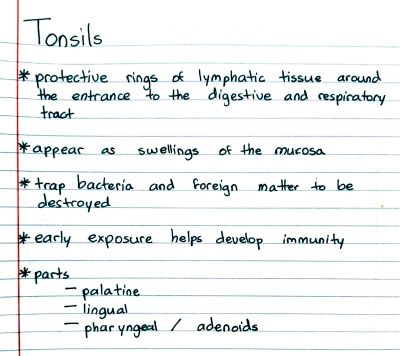 Tonsils
* protective rings of lymphatic tissue around
the entrance to the digestive and respiratory
tract
* appear as swellings of the mucosa
* trap bacteria and foreign matter to be
destroyed
* early exposure helps develop immunity
* parts
— palatine
— lingual
— pharyngeal / adenoids